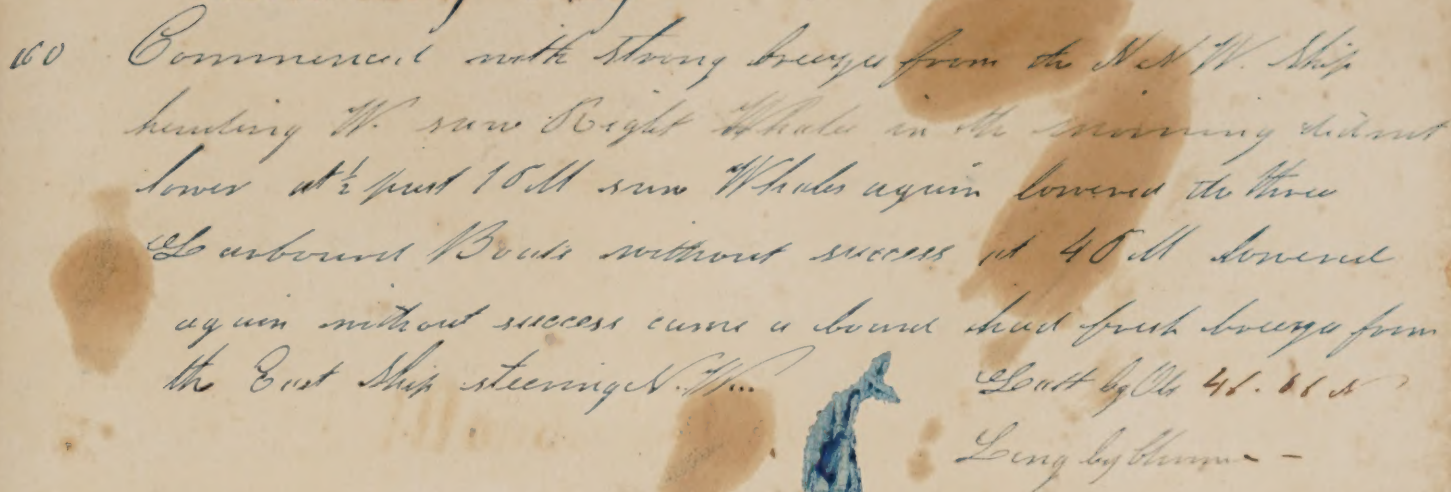 Commenced with strong breezes from the N N W. Ship
heading W. saw Right Whales in the morning did not
lower at ½ past 1 O M saw Whales again lowered the three
Larbourd Boats without success at 4 O M lowered
again without success came a bourd had fresh breezes from
the East Ship steering N. W...
Latt by Obs N
Long by Chrom -